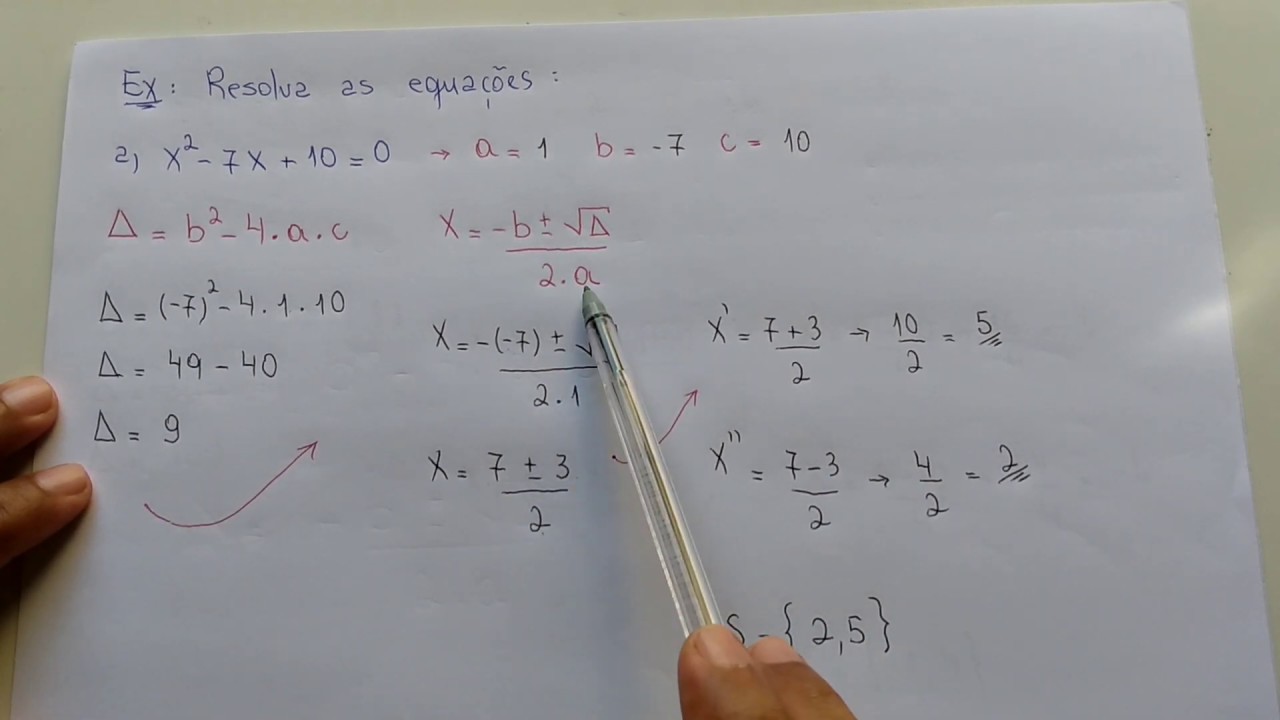 Ex: Resolva as equações:
a) x² - 7x + 10 = 0 → a = 1 b = -7 c = 10
Δ = b² - 4 . a . c
Δ = (-7)² - 4 . 1 . 10
Δ = 49 - 40
Δ = 9
x = -b ± √Δ
2 . a
x = -(-7) ± √
2 . 1
x = 7 ± 3
2
x' = 7 + 3 → 10 = 5
2 2
x'' = 7 - 3 → 4 = 2
2 2
S = {2,5}